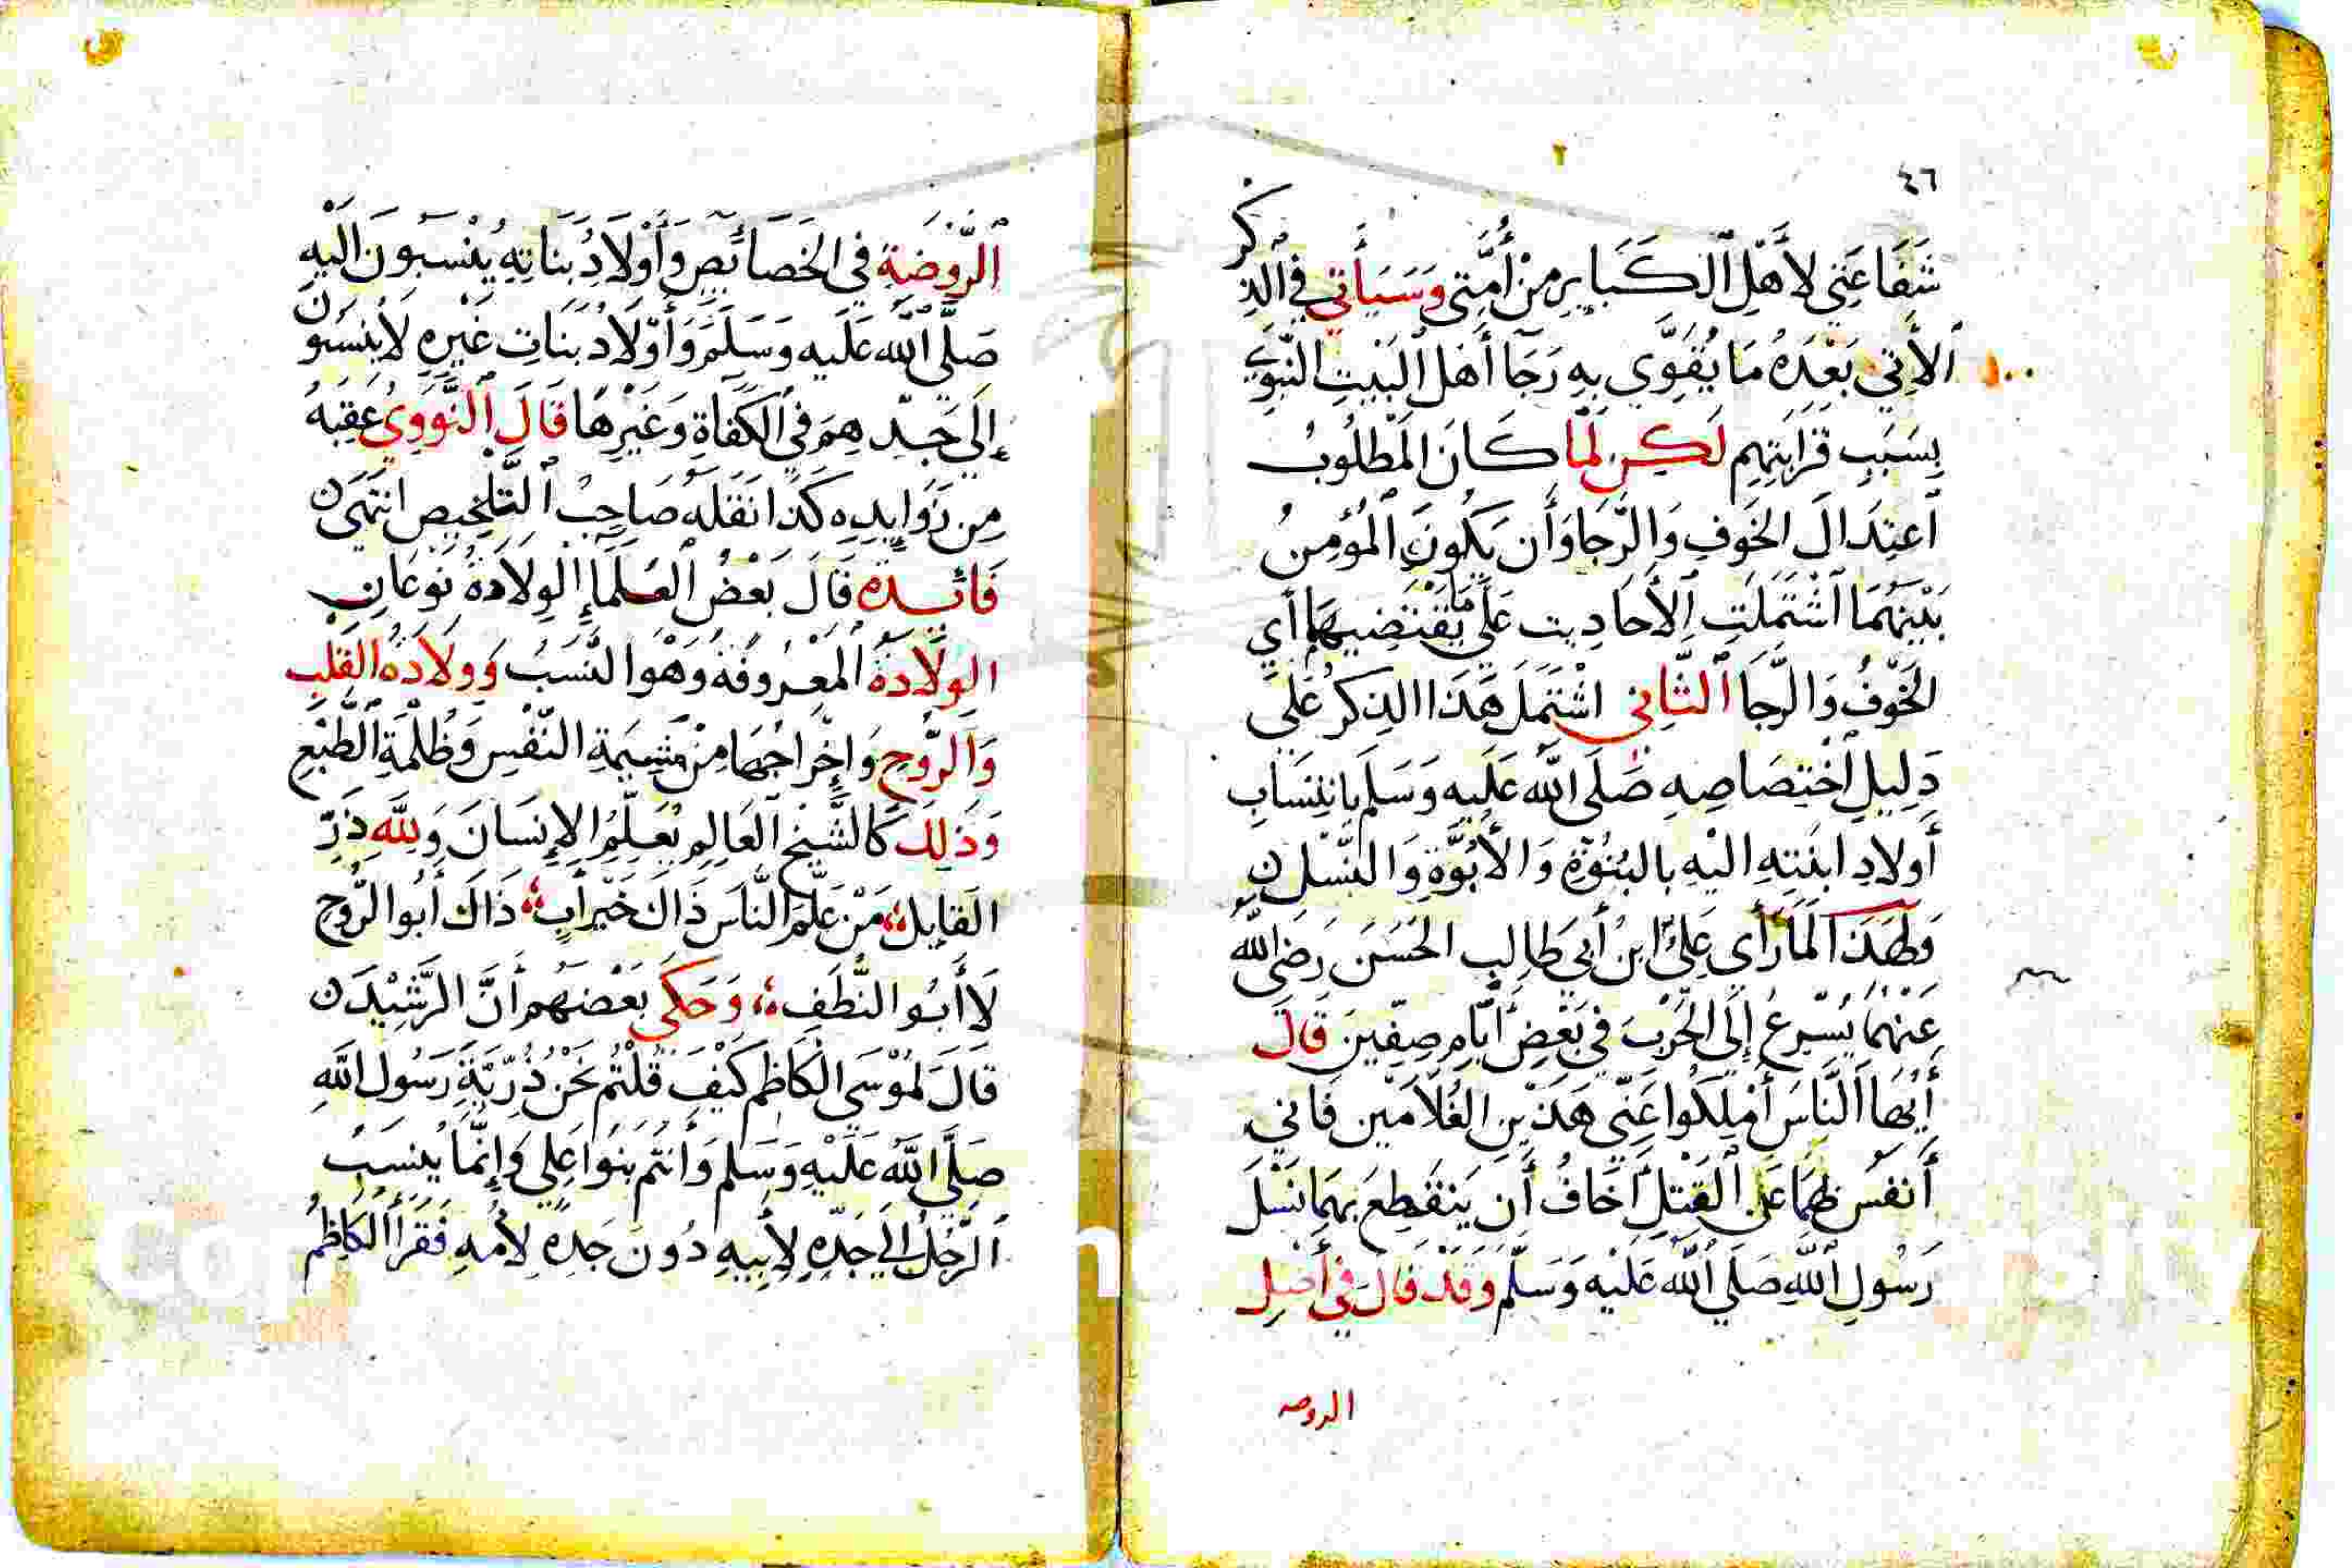 ٤٦
شَفَاعَتِي لأَهْلِ الكَبَايِرِ مِنْ أُمَّتِي وَسَيَأْتِي فِي الذِكْر
الأَتِي بَعْدَهُ مَا يُقَوِّي بِهِ رَجَآ أَهْل البَيْتِ النَّبَوِيِّ
بِسَبَبِ قَرَابَتِهِم لَكِن لَمَّا كَانَ المَطْلُوبُ
اعْتِدَالَ الخَوفِ وَالرَّجَا وَأَن يَكُونَ المُؤْمِنُ
بَيْنَهُمَا اشْتَمَلَتِ الأَحَادِيث عَلَى مَا يَقْتَضِيهِمَا أي
الخَوْفُ وَالرَّجَا الثَّانِي اشْتَمَلَ هَذَا الذِكْرُ عَلَى
دَلِيلِ اخْتِصَاصِهِ صَلَى اللَّه عَلَيهِ وَسَلَم بَانتِسَابِ
أَولادِ ابنَتِهِ اليْهِ بالبُنُوَّةِ وَالأُبُوَّةِ وَالنَّسْلِ
وَلِهَذَا لَمَّا رَأَي عَلِيُّ ابنُ أَبِي طَالِبِ الحَسَنَ رَضِيَ اللَّه
عَنْهُمَا يُسْرِعُ إِلَى الحَرْبِ فِي بَعْضِ أَيَّامِ صِفِّينَ قَالَ
أَيُّهَا النَّاسُ أَمْلِكُوا عَنِّي هَذَيْنِ الغُلَامَيْنِ فَانِي
أَنفَسُ بِهِمَا عَلى القَتْلِ أَخَافُ أَن يَنقَطِعَ بِهِمَا نَسْلَ
رَسُولِ اللَّهِ صَلَى اللَّه عَلَيْه وَسَلَّم وَقَد قَالَ فِي أَصْلِ
الروضه
الرَّوْضَةِ فِي الخَصَائِصِ وَأَوْلَادُ بَنَاتِهِ يُنْسَبُونَ اليْهِ
صَلَّى اللَّه عَلَيه وَسَلَّمَ وَأَوْلَادُ بَنَاتِ غَيْرِهِ لَا يُنسَبُونَ
إِلَى جَدِّهِم فِي الكَفَاةِ وَغَيْرِهَا قَالَ النَّوَوِيُ عَقِبَهُ
مِن زَوَايِدِهِ كَذَا نَقَلَهُ صَاحِبُ التَّلْخِيصِ انتَهَى
فَائِدَه قَالَ بَعْضُ العُلَمَا إِلوِلَادَةُ نَوْعَانِ
الوِلَادَةُ المَعْرُوفَةُ وَهْوَ النَّسَبُ وَوِلَادَةُ القَلْبِ
وَالرُّوْحِ وَإِخْرَاجُهَا مِنْ مَشِيمَةِ النَّفْسِ وَظُلْمَةِ الطَّبْعِ
وَذَلِكَ كَالشَّيْخِ العَالِمِ يُعَلِّمُ الإِنسَانَ وَلِلَّهِ دَرُّ
القَايِل مَنْ عَلَّمَ النَّاسَ ذَاكَ خَيْرَ أَبٍ ذَاكَ أَبُوا الرُّوحِ
لَا أَبُوا النُّطَفِ وَحَكَى بَعْضُهُم أَنَّ الرَّشِيْدَ
قَالَ لمُوْسَى الكَاظِم كَيْفَ قُلْتُمْ نَحْنُ ذُرِّيَّةِ رَسُولِ اللَّهِ
صَلَّى اللَّه عَلَيْهِ وَسَلم وَأَنتُم بَنُوا عَلِي وَإِنَّمَا يُنسَبُ
الرَّجُلُ إِلَى جَدِّهِ لِأَبِيهِ دُونَ جَدِهِ لِأُمِّهِ فَقَرَأَ الكَاظِمُ